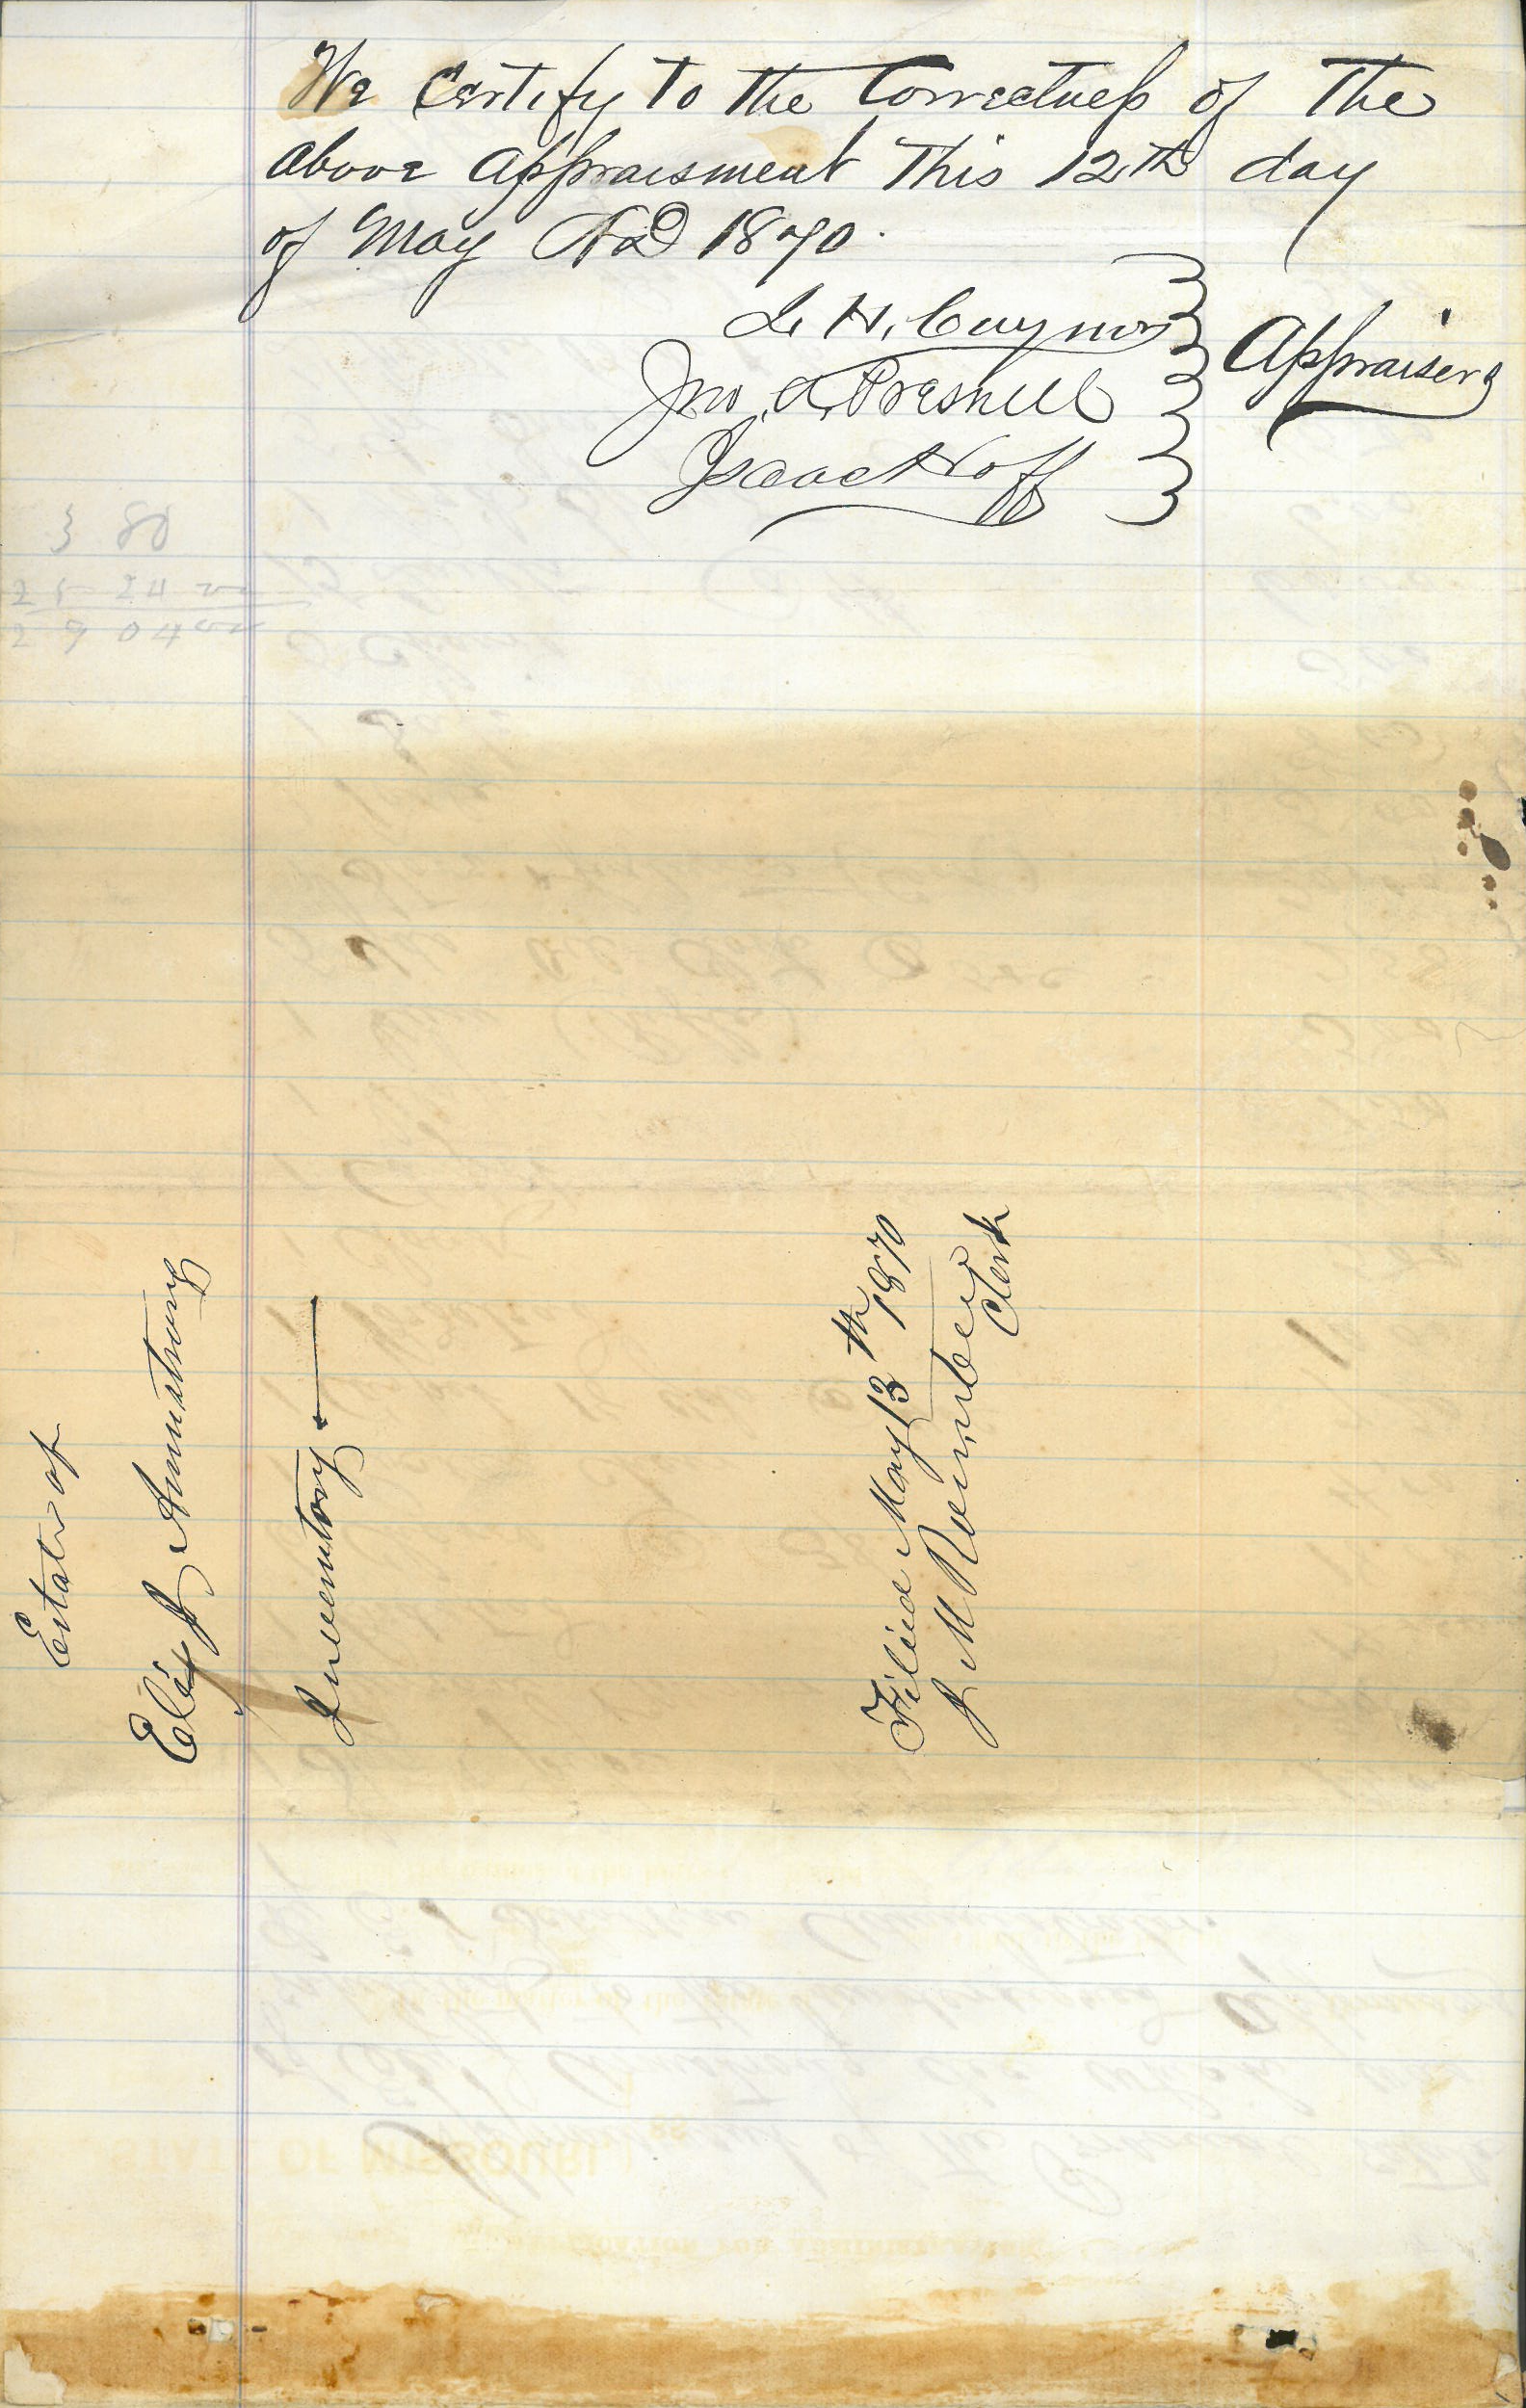 We Certify to the Correctness of the
above appraisment This 12th day
of May AD 1870.
L. H. Cuynor
Jno. A. Presnell
Isaac Hoff
Appraisers
3 80
25 24
29 04
Estate of
Eli J Armstrong
Inventory
Filed May 13th 1870
J M
Clerk